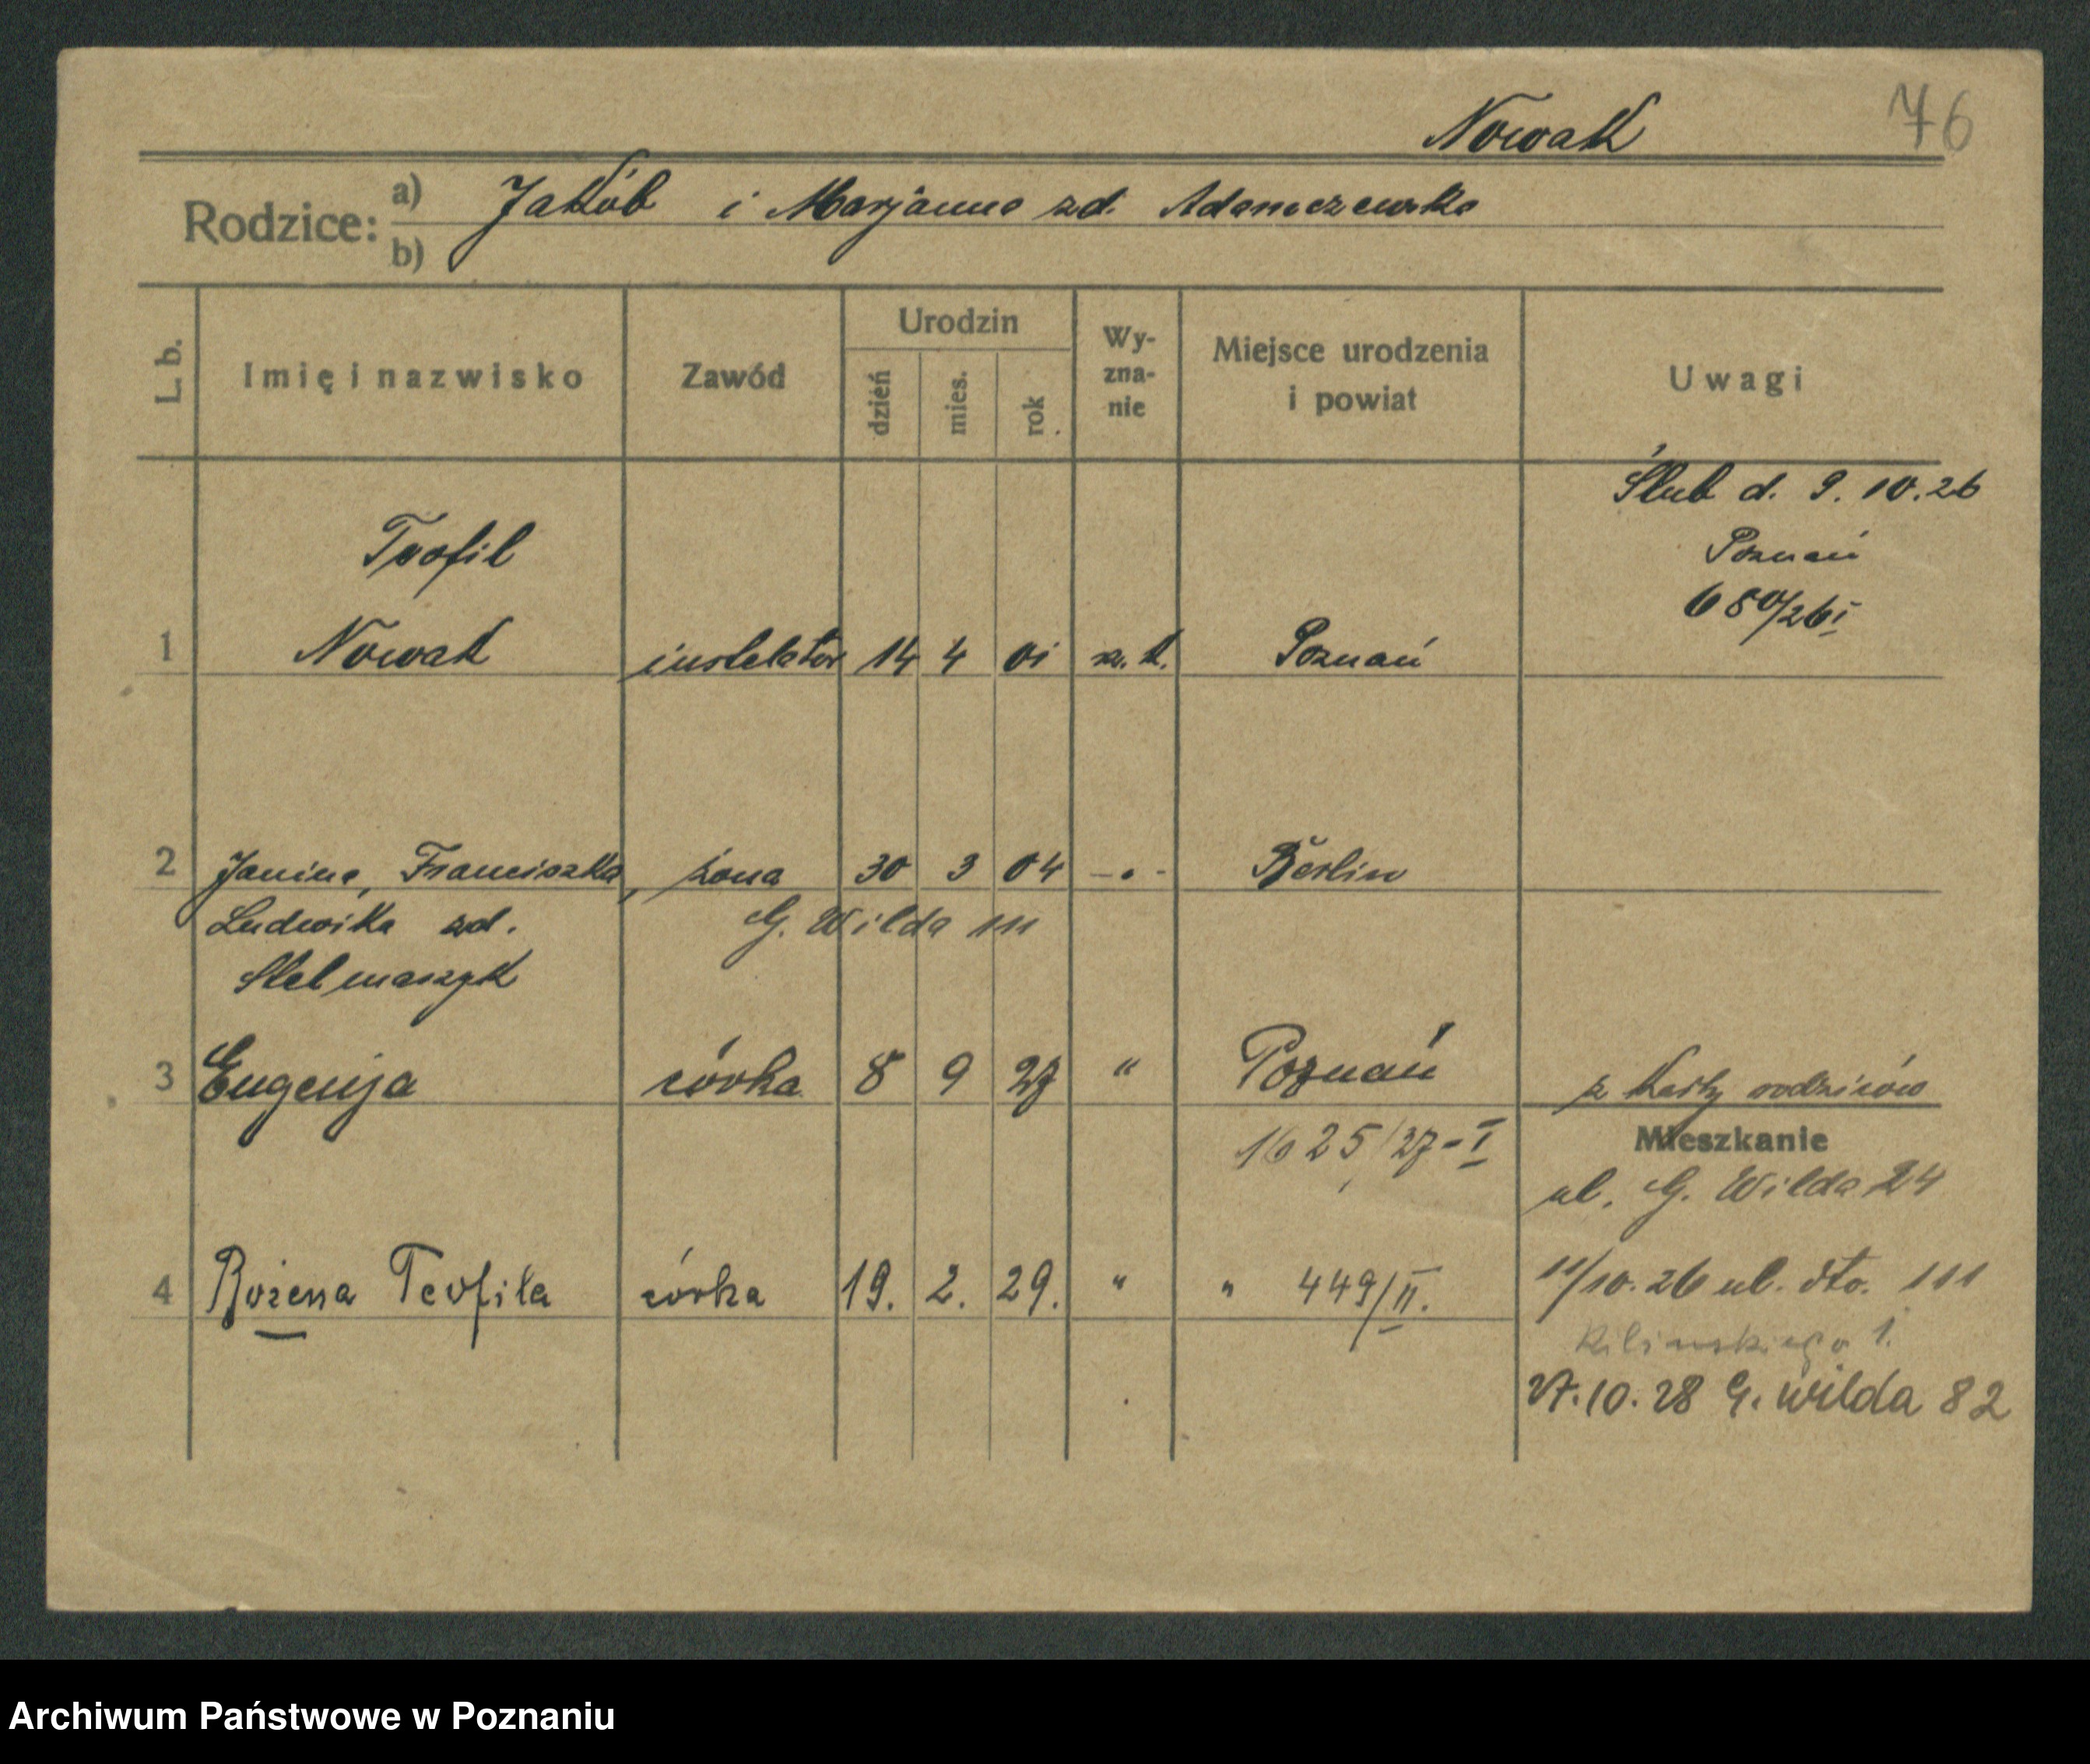 Nowak 76
Rodzice: a) Jakób i Marjanna zd. Adamczewska
b)
L. b. Imię i nazwisko Zawód Urodzin dzień mies. rok Wy-zna-nie Miejsce urodzenia i powiat Uwagi
Ślub d. 9. 10. 26
Teofil Poznań
680/26 I
1 Nowak instalator 14 4 01 rz. k. Poznań
2 Janina, Franciszka, żona 30 3 04 -"- Berlin
Ludwika zd. G. Wilda 111
Stelmaszyk
3 Eugenja córka 8 9 27 " Poznań z karty rodziców
1625/27-I Mieszkanie
ul. G. Wilda 24
4 Bożena Teofila córka 19. 2. 29. " " 449/II. 11/10. 26 ul. dto. 111
Kilinskiego 1.
27. 10. 28 G. Wilda 82
Archiwum Państwowe w Poznaniu